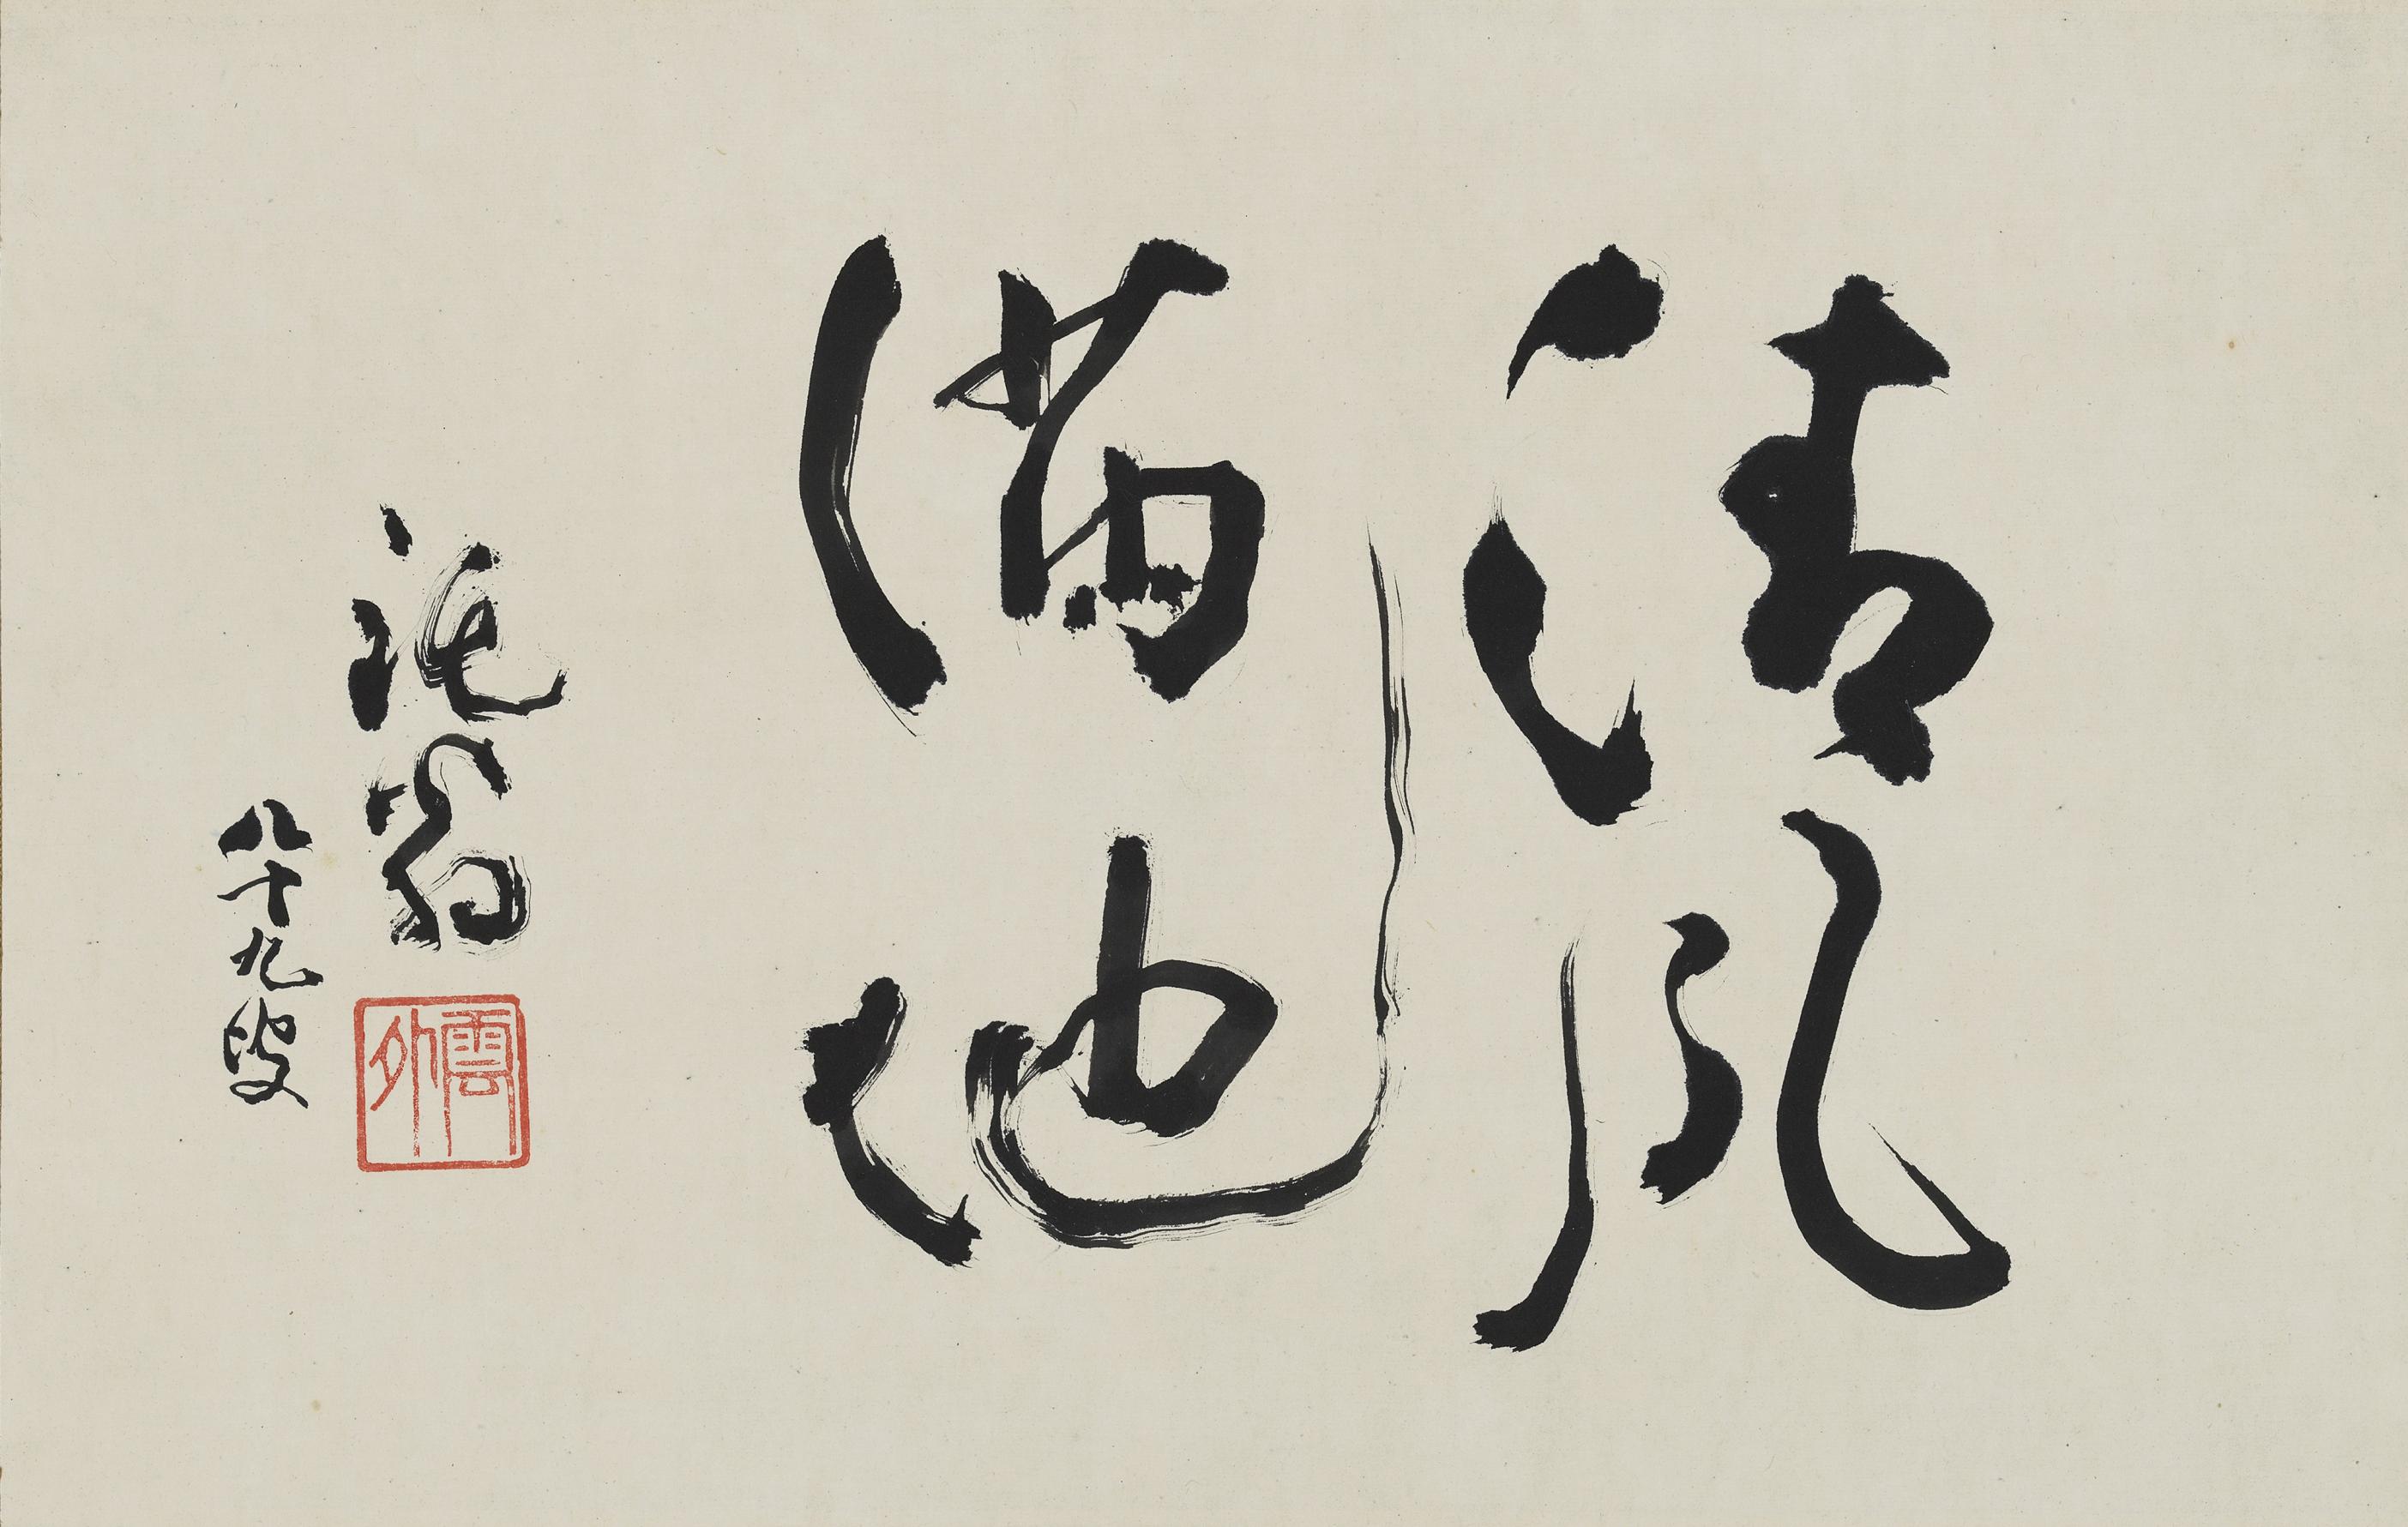 清風
満地
沱翁
八十九叟
雲外